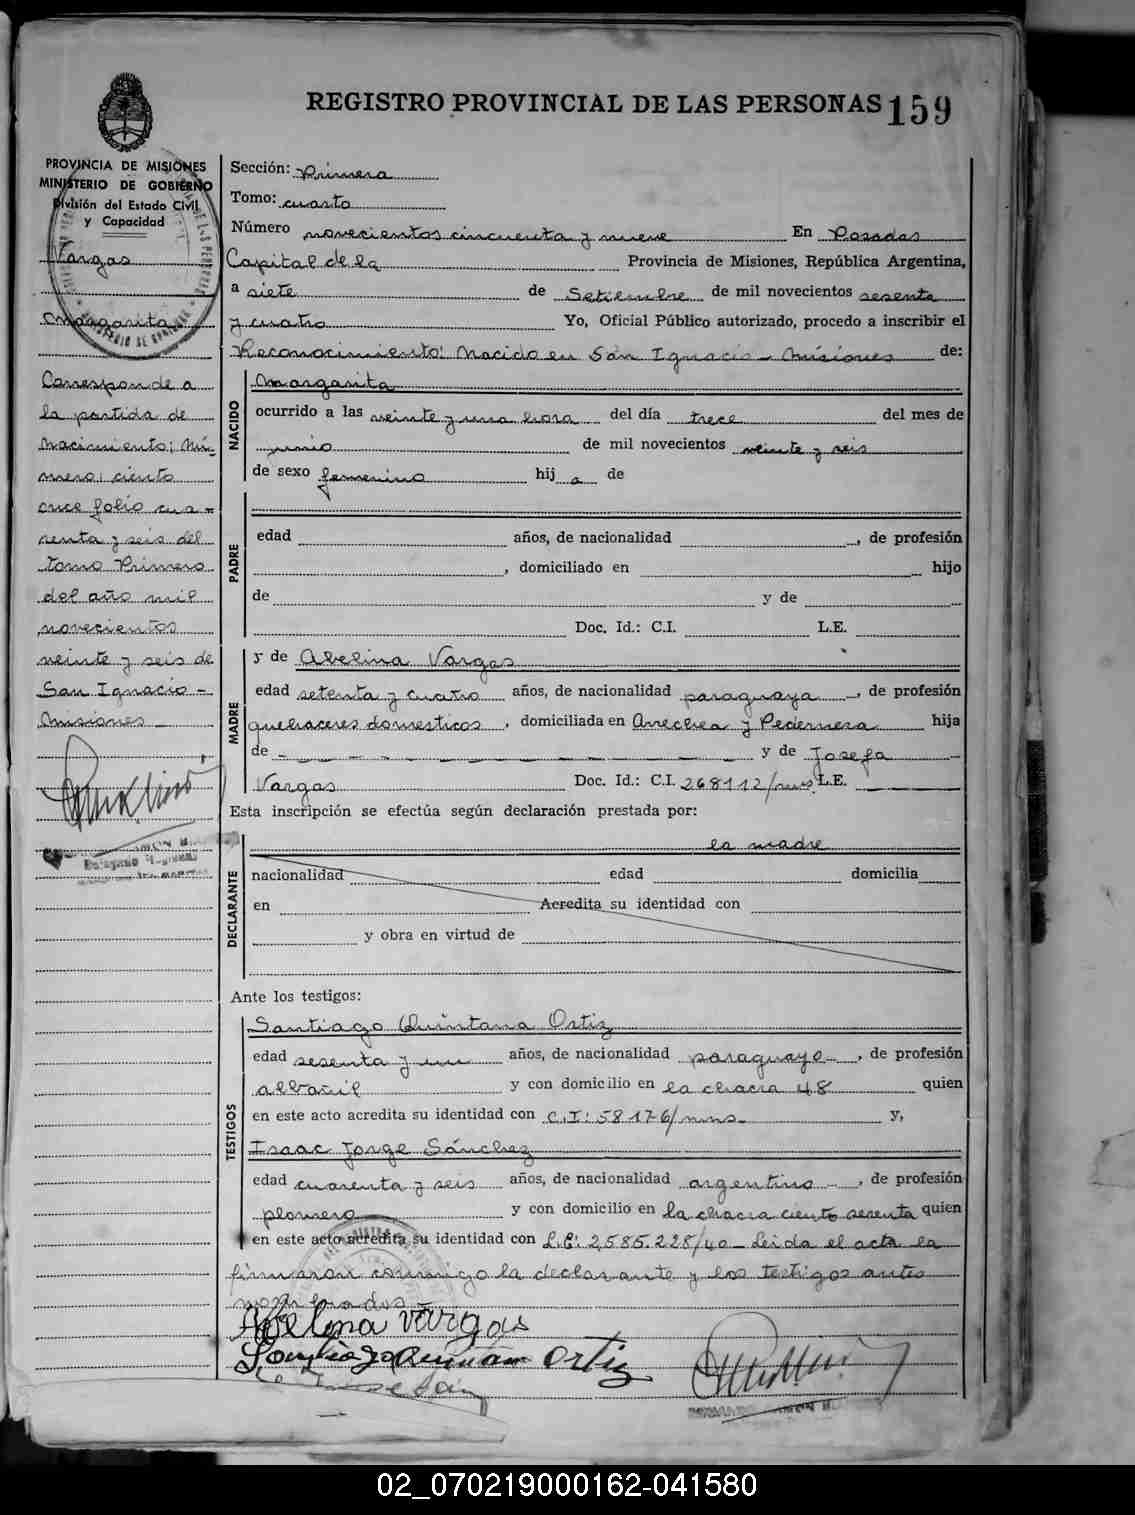 REGISTRO PROVINCIAL DE LAS PERSONAS 159
PROVINCIA DE MISIONES
MINISTERIO DE GOBIERNO
División del Estado Civil
y Capacidad
Vargas
Margarita
Corresponde a
la partida de
Nacimiento: Nú-
mero: ciento
once folio cua-
renta y seis del
tomo Primero
del año mil
novecientos
veinte y seis de
San Ignacio -
Misiones -
Sección: Primera
Tomo: cuarto
Número novecientos cincuenta y nueve En Posadas
Capital de la Provincia de Misiones, República Argentina,
a siete de Setiembre de mil novecientos sesenta
y cuatro Yo, Oficial Público autorizado, procedo a inscribir el
Reconocimiento: Nacido en San Ignacio - Misiones de:
NACIDO
Margarita
ocurrido a las veinte y una hora del día trece del mes de
junio de mil novecientos veinte y seis
de sexo femenino hij a de
PADRE
edad años, de nacionalidad , de profesión
, domiciliado en hijo
de y de
Doc. Id.: C.I. L.E.
MADRE
y de Abelina Vargas
edad setenta y cuatro años, de nacionalidad paraguaya -, de profesión
quehaceres domesticos , domiciliada en Arrechea y Pedernera hija
de - - - - - - - - y de Josefa -
Vargas Doc. Id.: C.I. 268112/mns. L.E.
Esta inscripción se efectúa según declaración prestada por:
DECLARANTE
la madre
nacionalidad edad domicilia
en Acredita su identidad con
y obra en virtud de
Ante los testigos:
TESTIGOS
Santiago Quintana Ortiz
edad sesenta y un años, de nacionalidad paraguayo -, de profesión
albañil y con domicilio en la chacra 48 quien
en este acto acredita su identidad con C.I: 58176/mns. y,
Isaac Jorge Sánchez
edad cuarenta y seis años, de nacionalidad argentino -, de profesión
plomero y con domicilio en la chacra ciento sesenta quien
en este acto acredita su identidad con L.E: 2,585.228/40 - Leida el acta la
firmaron conmigo la declarante y los testigos antes
nombrados -
Abelina Vargas
Santiago Quintana Ortiz
02_070219000162-041580